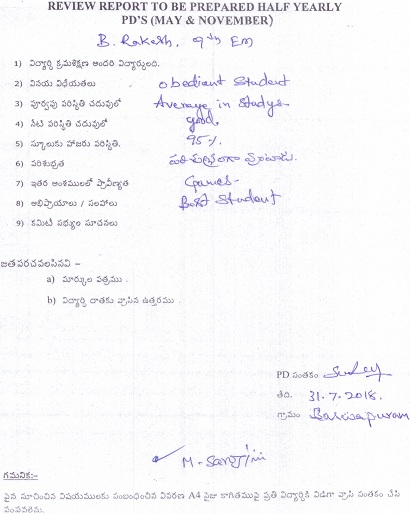 REVIEW REPORT TO BE PREPARED HALF YEARLY
PD'S (MAY & NOVEMBER)
B. Rakesh. 9th EM
1) విద్యార్థి క్రమశిక్షణ అందరి విద్యార్థులది.
2) వినయ విధేయతలు obediant Student
3) పూర్వపు పరిస్థితి చదువులో Average in Studys
4) నేటి పరిస్థితి చదువులో good.
5) స్కూలుకు హాజరు పరిస్థితి. 95%.
6) పరిశుభ్రత పరిశుభ్రంగా వుంటాడు.
7) ఇతర అంశములలో ప్రావీణ్యత Games-
8) అభిప్రాయాలు / సలహాలు Best Student
9) కమిటీ సభ్యుల సూచనలు
జతపరచవలసినవి –
a) మార్కుల పత్రము .
b) విద్యార్థి దాతకు వ్రాసిన ఉత్తరము .
PD సంతకం
తేది. 31.7.2018.
గ్రామం
M. Sarojini
గమనిక:-
పైన సూచించిన విషయములకు సంబంధించిన వివరణ A4 సైజు కాగితముపై ప్రతి విద్యార్థికి విడిగా వ్రాసి సంతకం చేసి
పంపవలెను.